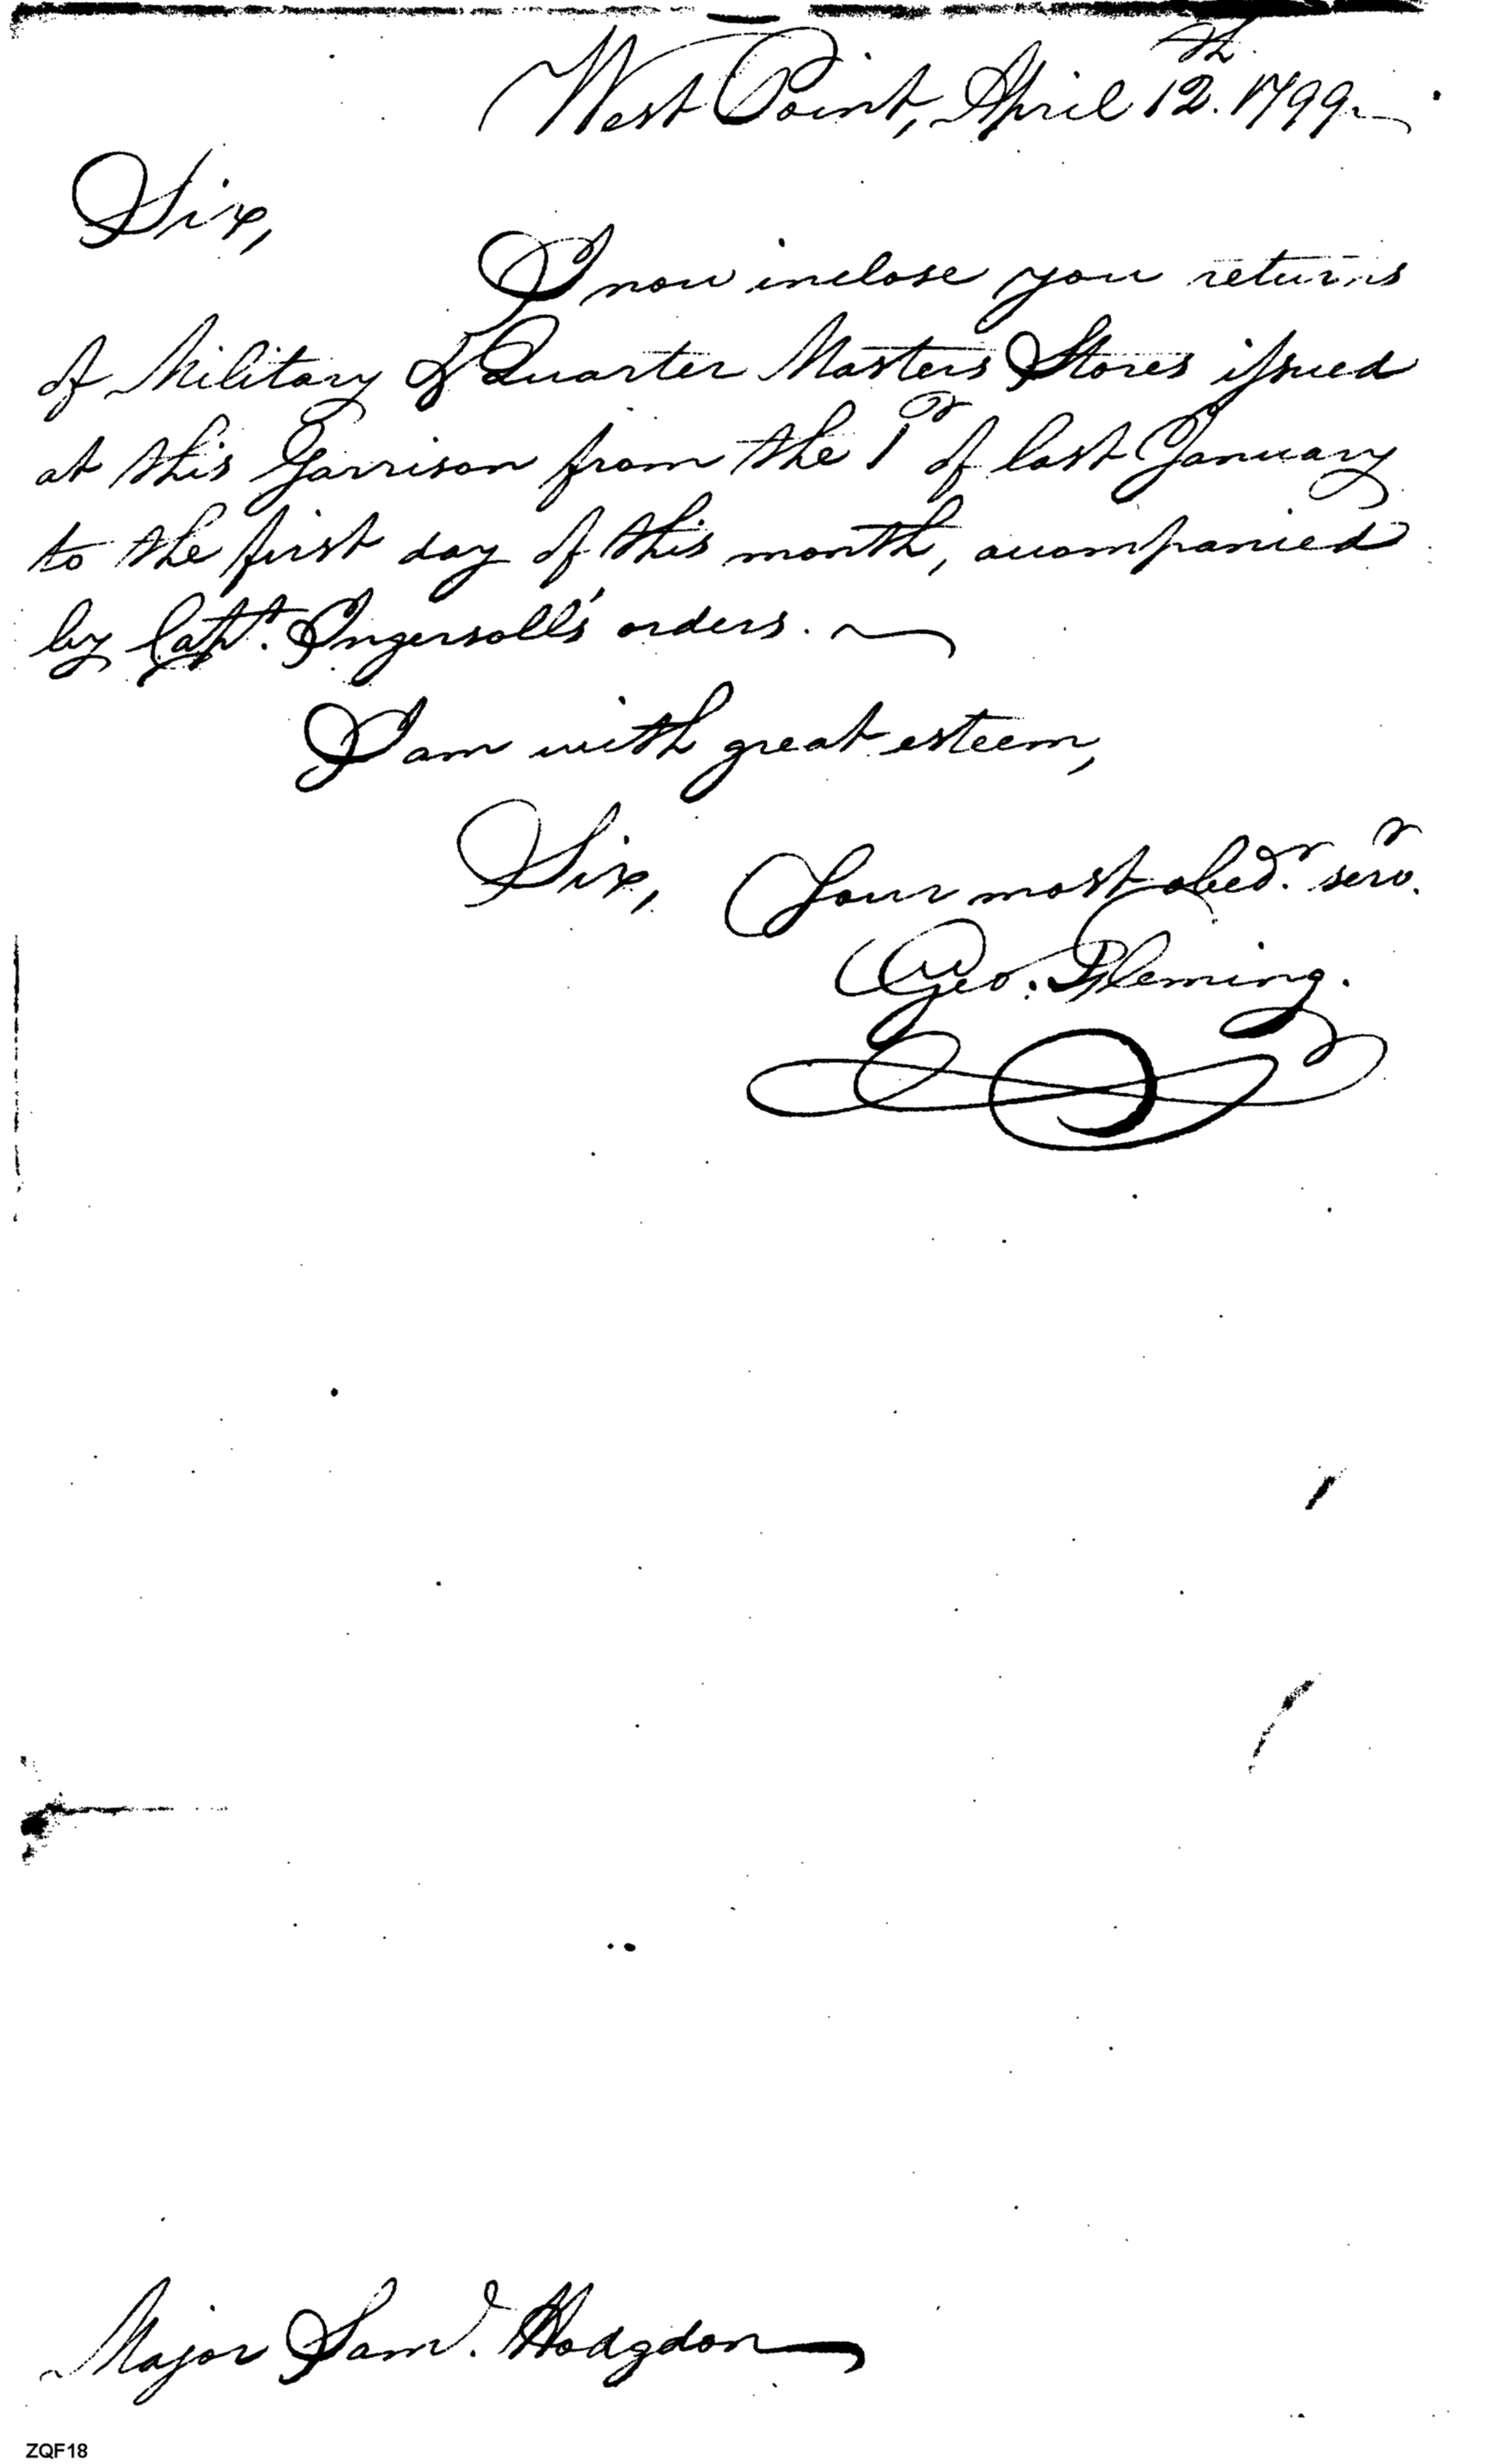 West Point, April 12.th 1799.
Sir,
I now inclose you returns
of Military & Quarter Masters Stores issued
at this Garrison from the 1st of last January
to the first day of this month, accompanied
by Capt. Ingersoll's orders.
I am with great esteem,
Sir, Your most obedr. servr.
Geo. Fleming.
Major Saml. Hodgdon
ZQF18